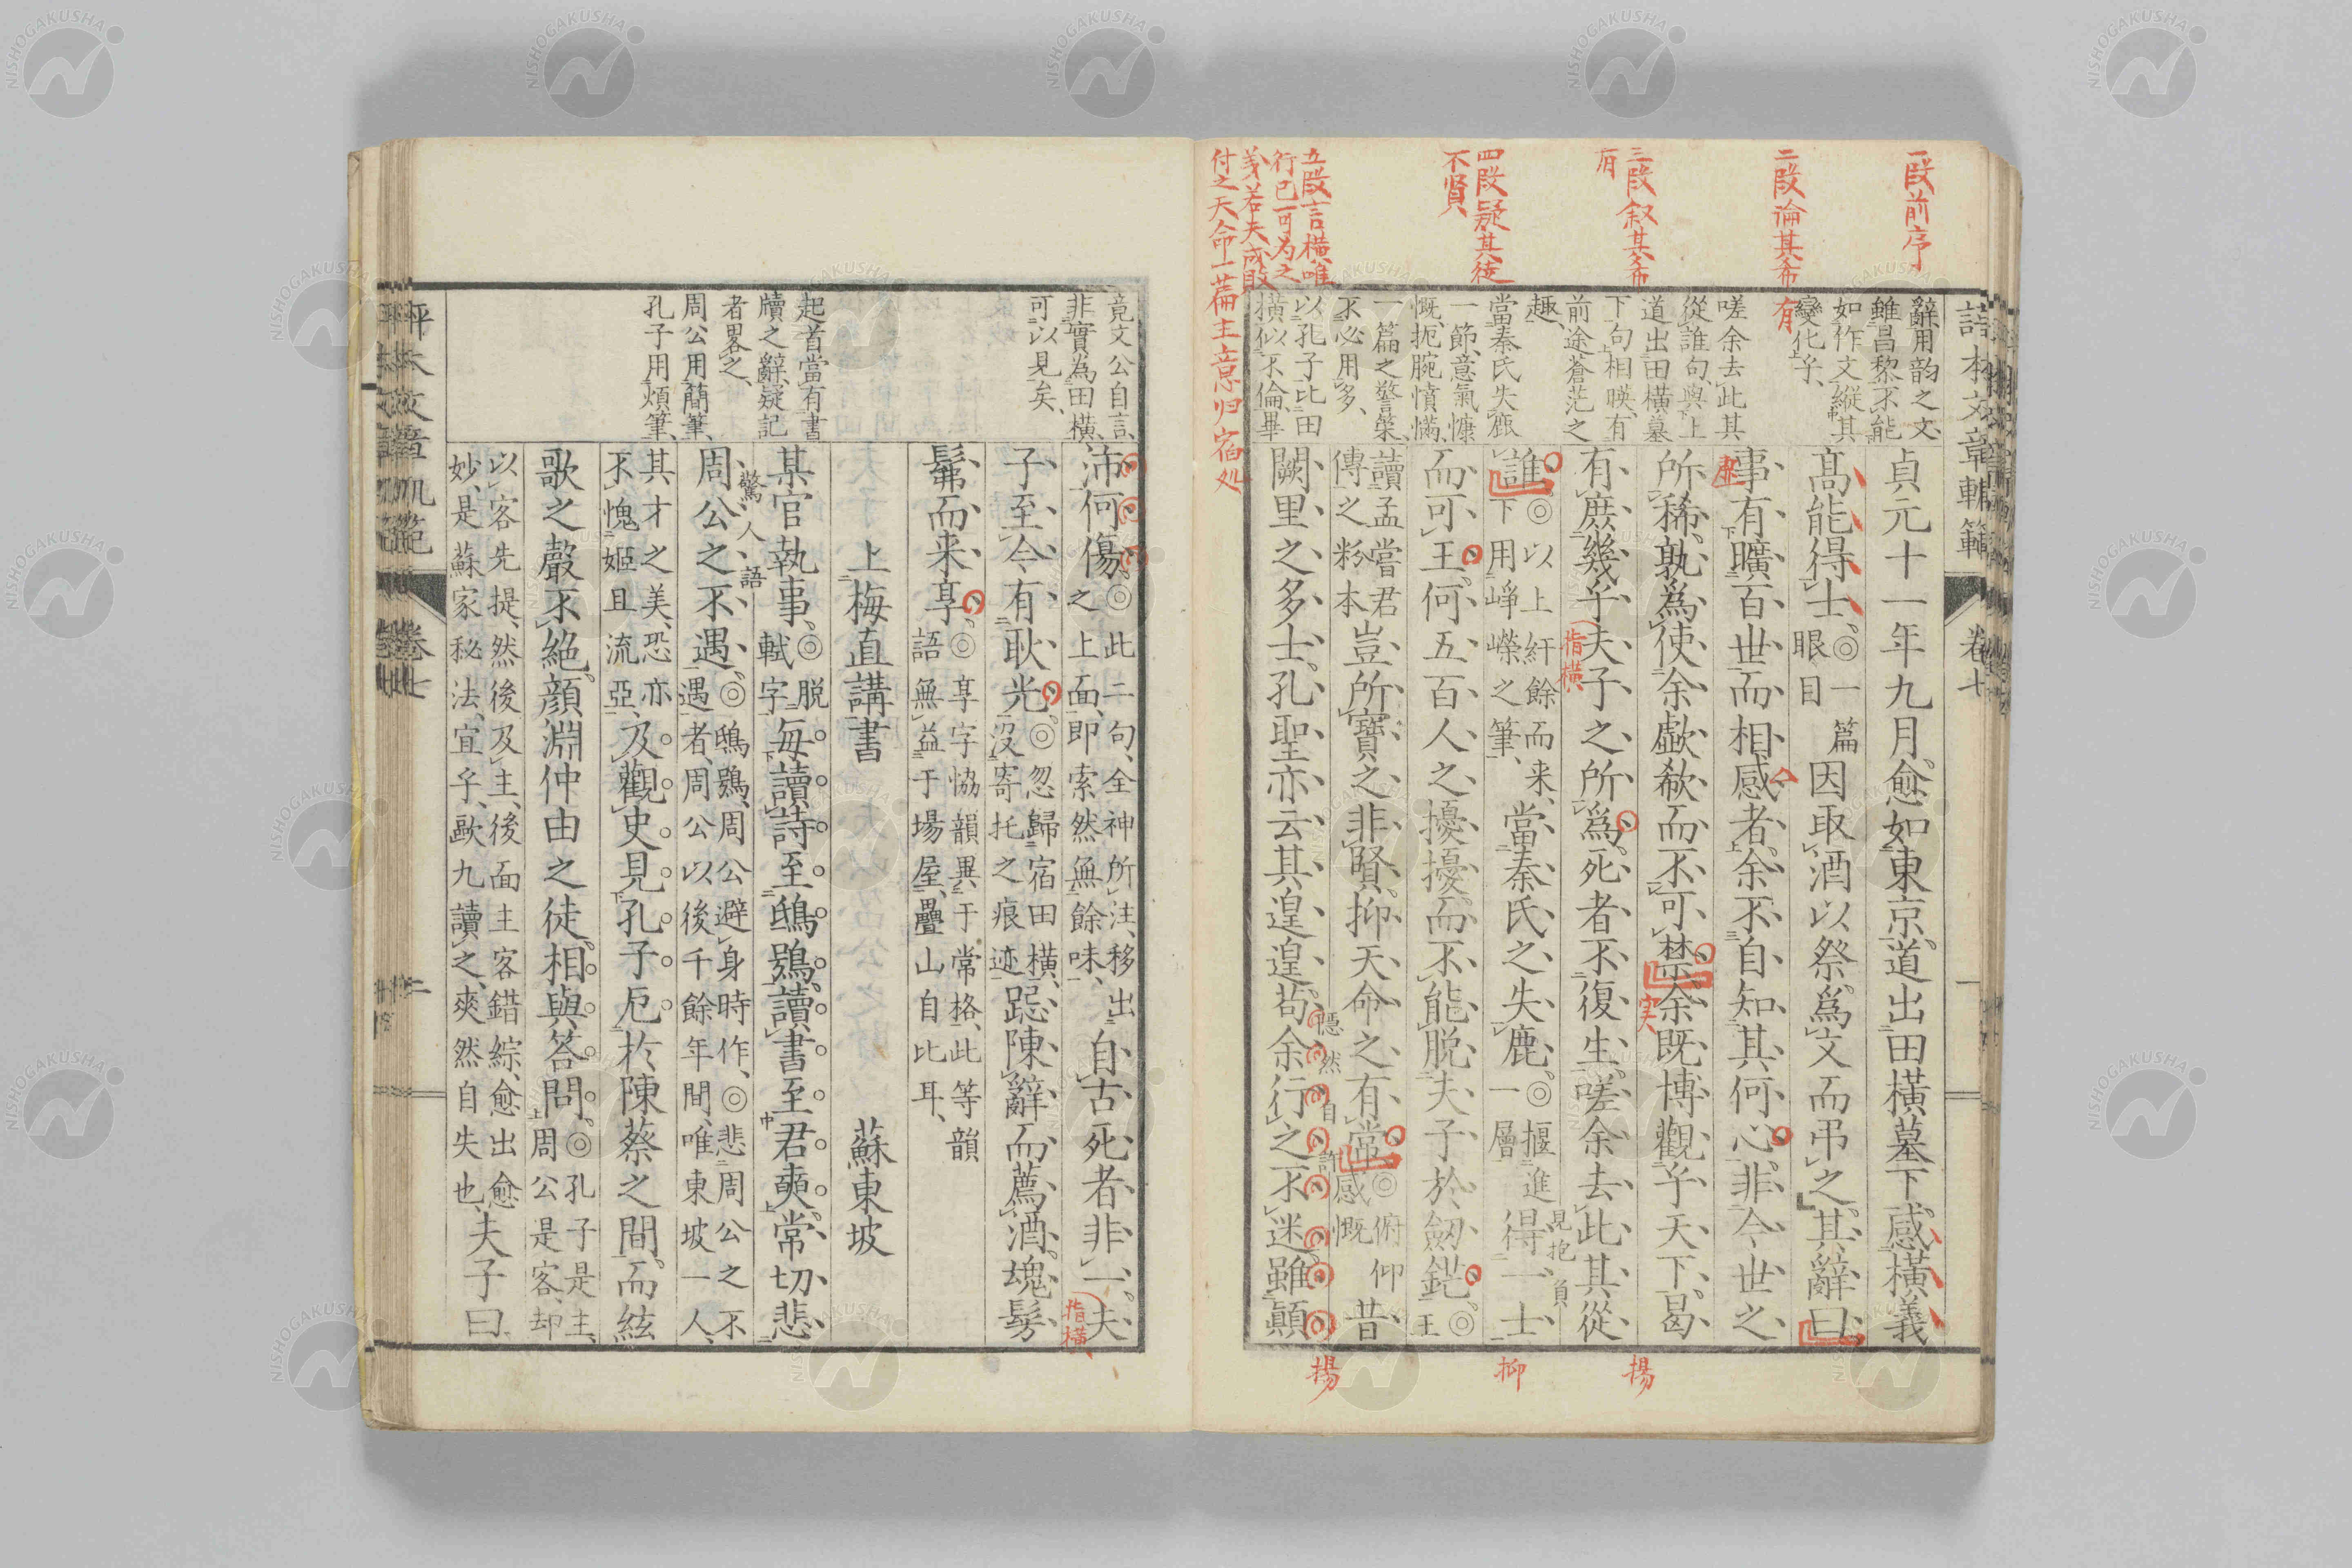 一段前序
二段論其希
有
三段叙其希
有
四段疑其徒
不賢
五段言橫唯
行己可为之
义若夫成敗
付之天命一篇主意归宿処
辭用韵之文、
雖昌黎不能
如作文縱其
變化乎、
嗟余去此其
從誰句與上
道出田橫墓
下句相暎、有
前途蒼茫之
趣、
當秦氏失鹿
一節、意氣慷
慨扼腕憤懣、
一篇之警策、
不必用多、
以孔子比田
橫似不倫、畢
評本文章軌範 卷七
貞元十一年九月、愈如東京、道出田橫墓下、感橫義
高能得士、◎一篇眼目因取酒以祭、爲文而弔之、其辭曰、
事有曠百世而相感者、余不自知其何心、非今世之
所稀、孰爲使余歔欷而不可禁、余既博觀乎天下、曷
有庶幾乎夫子之所爲、死者不復生、嗟余去此其從
誰、◎以上紆餘而来、下用崢嶸之筆、當秦氏之失鹿、◎一層揠進得一士
而可王、何五百人之擾擾、而不能脫夫子於劔鋩、◎王
讀孟嘗君傳之粉本豈所寶之非賢、抑天命之有常、◎俯仰感慨昔
闕里之多士、孔聖亦云其遑遑、苟余行之不迷、雖顛
虚
实
指橫
見抱負
隱然自許
揚
抑
揚
竟文公自言、
非實為田橫、
可以見矣、
起首當有書
牘之辭、疑記
者畧之、
周公用簡筆、
孔子用煩筆、
沛何傷、◎此二句、全神所注、移出之上面、即索然無餘味、自古死者非一、夫
指橫
子至今有耿光、◎忽歸宿田橫、没寄托之痕迹、跽陳辭而薦酒、魂髣
髴而来享、◎享字恊韻異于常格、此等韻語無益于場屋、疊山自比耳、
上梅直講書 蘇東坡
某官執事、◎脫軾字每讀詩至鴟鴞、讀書至君奭、常切悲
驚人語
周公之不遇、◎鴟鴞、周公避身時作、◎悲周公之不遇者、周公以後千餘年間、唯東坡一人、
其才之美、恐亦不愧姬且流亞、及觀史見孔子厄於陳蔡之間、而絃
歌之聲不絕、顔淵仲由之徒、相與答問、◎孔子是主、周公是客、却
以客先提、然後及主、後面主客錯綜、愈出愈妙、是蘇家秘法、宜乎、歐九讀之、爽然自失也、夫子曰